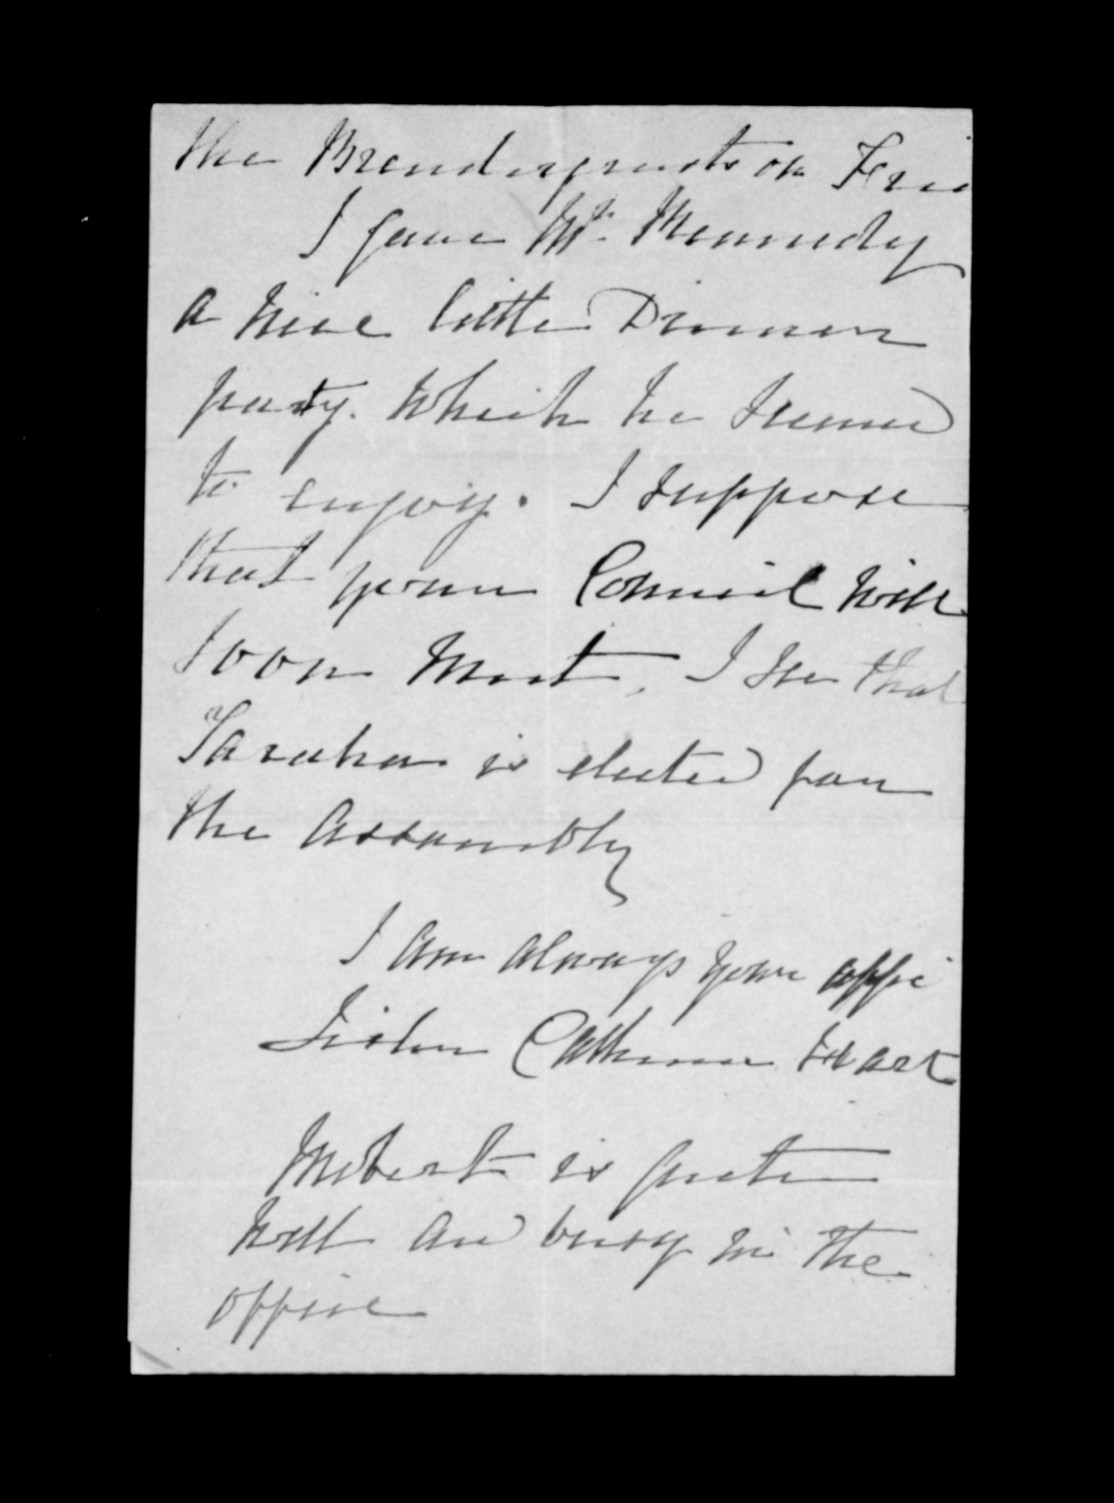 the Brendergrasts on Frid
I gave Mr. Kennedy
a nice little Dinner
party. Which he seemed
to enjoy. I suppose
that your Council will
soon meet. I see that
is elected for
the Assembly
I am always your affe
Sister Catherine Hart
Robert is quite
well and busy in the
office